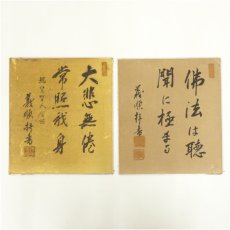 大悲無倦
常照我身
義順拝書
佛法は聴
聞に極まる
義順拝書